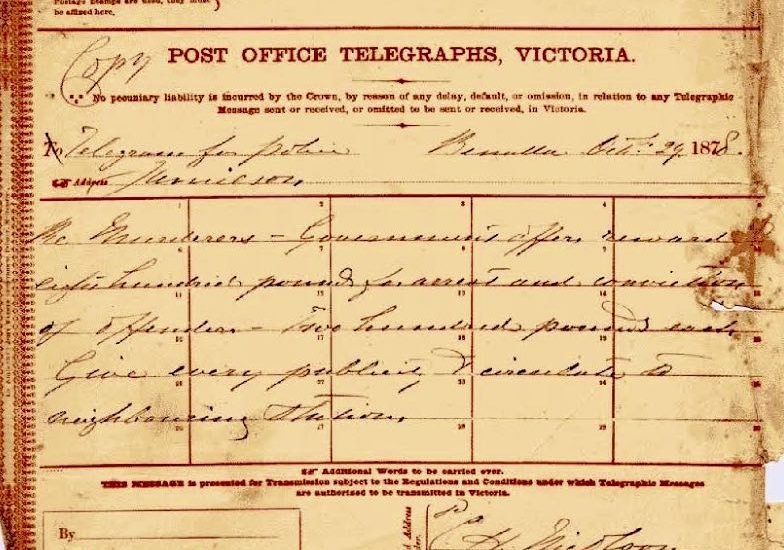 Postage Stamps are used, they must
be affixed here.
Copy
POST OFFICE TELEGRAPHS, VICTORIA.
No pecuniary liability is incurred by the Crown, by reason of any delay, default, or omission, in relation to any Telegraphic
Message sent or received, or omitted to be sent or received, in Victoria.
To Telegram for police Benalla Oct. 29 1878.
Address Jamieson
1 2 3 4
Re Murderers - Government offer reward
6 7 8 9
eight hundred pounds for arrest and conviction
11 12 13 14
of offenders - Two hundred pounds each
16 17 18 19
Give every publicity & circulate to
21 22 23 24
neighbouring Stations
26 27 28 29
Additional Words to be carried over.
THIS MESSAGE is presented for Transmission subject to the Regulations and Conditions under which Telegraphic Messages
are authorized to be transmitted in Victoria.
By
Address
C H Nicolson